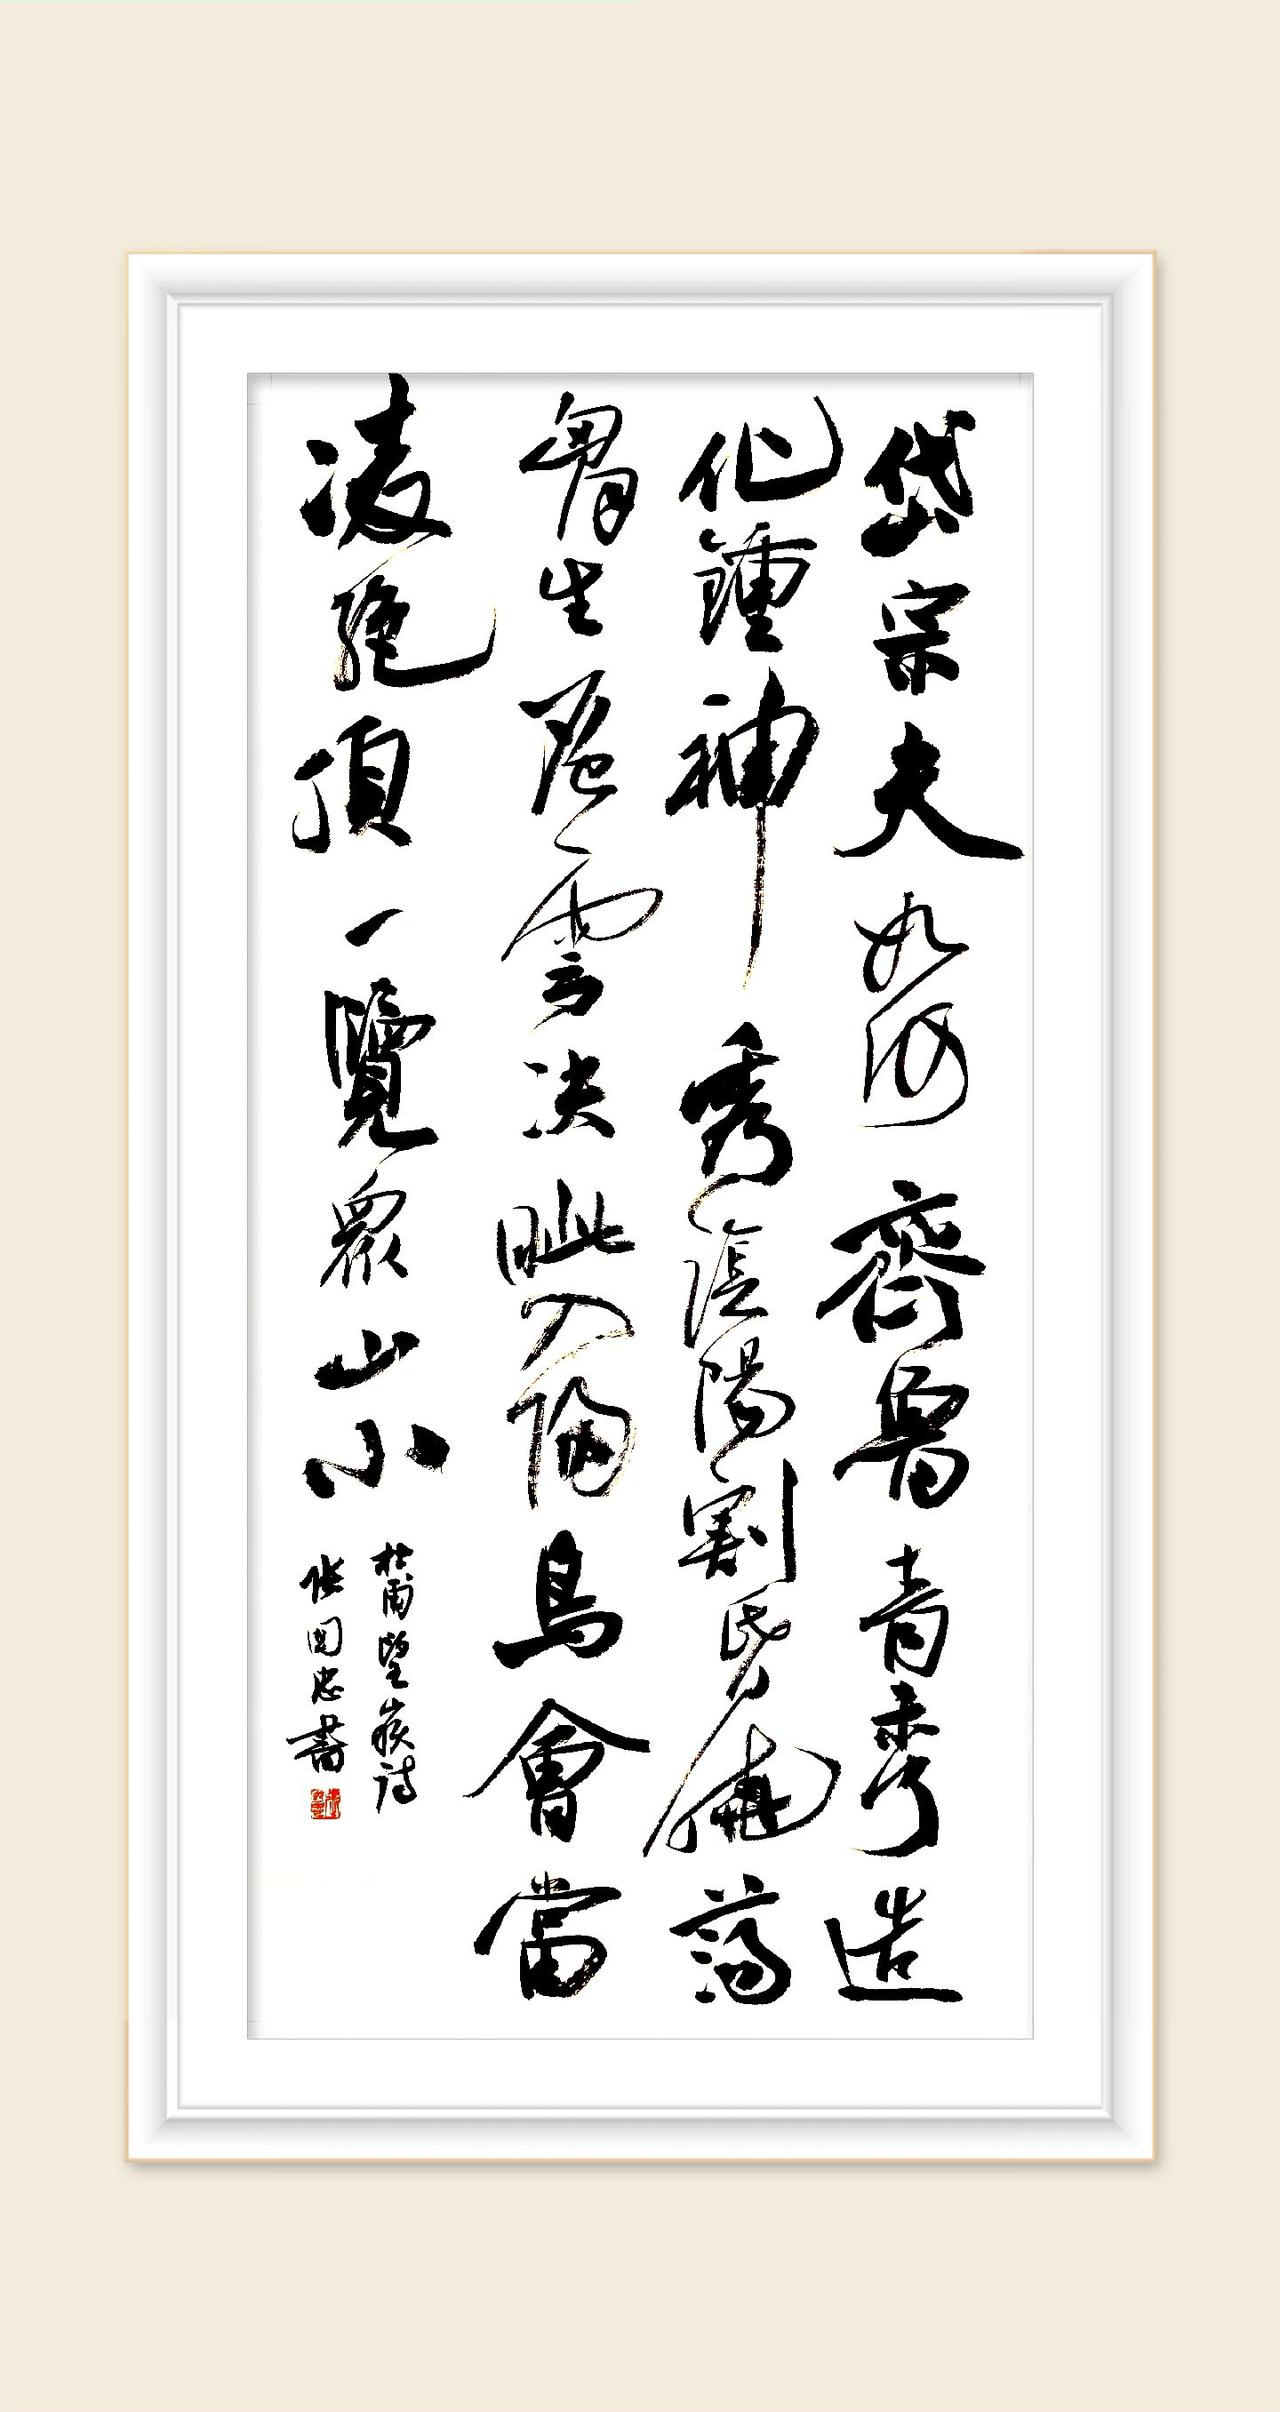 岱宗夫如何齊魯青未了造
化鍾神秀陰陽割昏曉蕩
胷生層雲决眦入歸鳥會當
凌絶頂一覽眾山小
杜甫望嶽詩
張国忠書